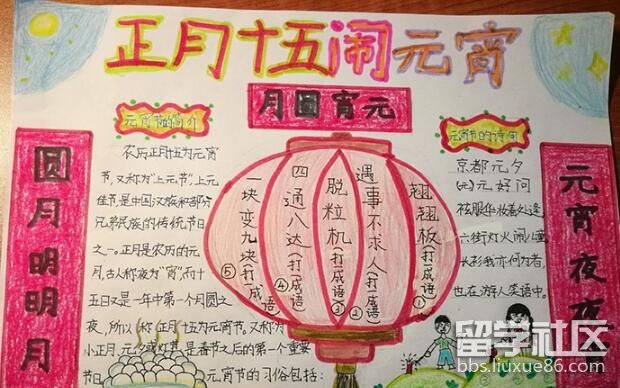 正月十五闹元宵
月圆宵元
圆月明明月
元宵夜夜
元宵节的简介
农历正月十五为元宵
节，又称为"上元节"，上元
佳节，是中国汉族和部分
兄弟民族的传统节日
之一。正月是农历的元
月，古人称夜为"宵"，而十
五日又是一年中第一个月圆之
夜，所以称正月十五为元宵节。又称为
小正月、元夕或灯节，是春节之后的第一个重要
节日
元宵节的习俗包括：
翘翘板（打一成语）①
遇事不求人（打一成语）②
脱粒机（打一成语）③
四通八达（打一成语）④
一块变九块（打一成语）⑤
元宵节的诗句
京都元夕
元好问
袨服华妆着处逢
六街灯火闹儿童
长衫我亦何为者，
也在游人笑语中。
留学社区
bbs.liuxue86.com